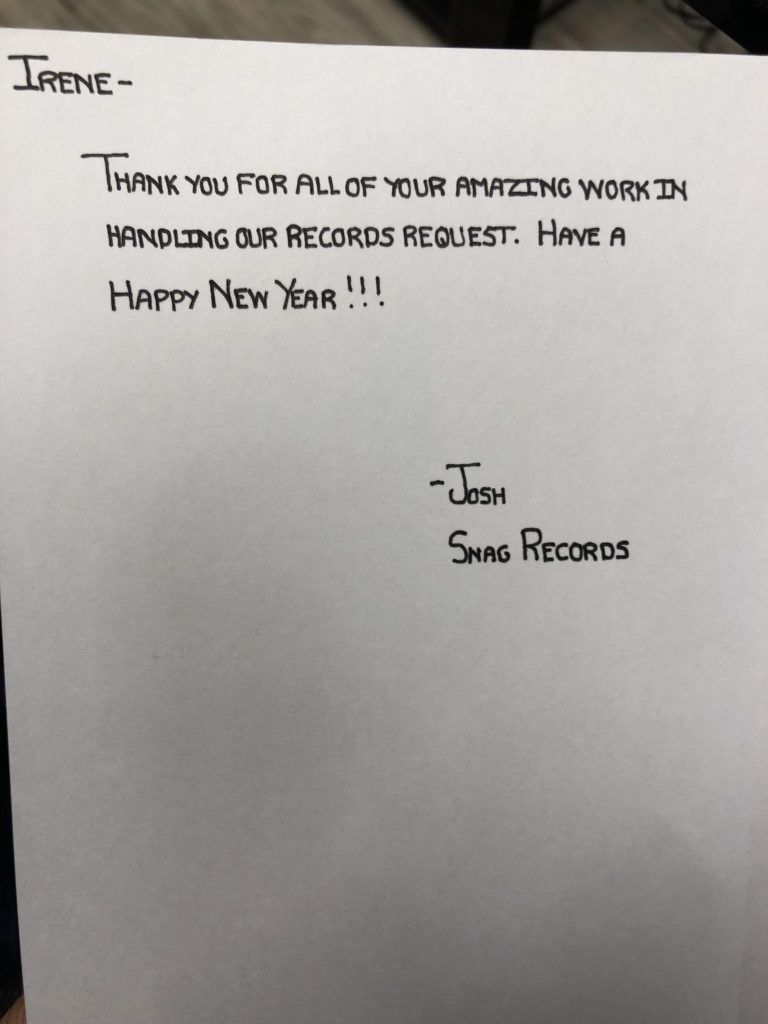 Irene-
Thank you for all of your amazing work in
handling our records request. Have a
Happy New Year!!!
-Josh
Snag Records